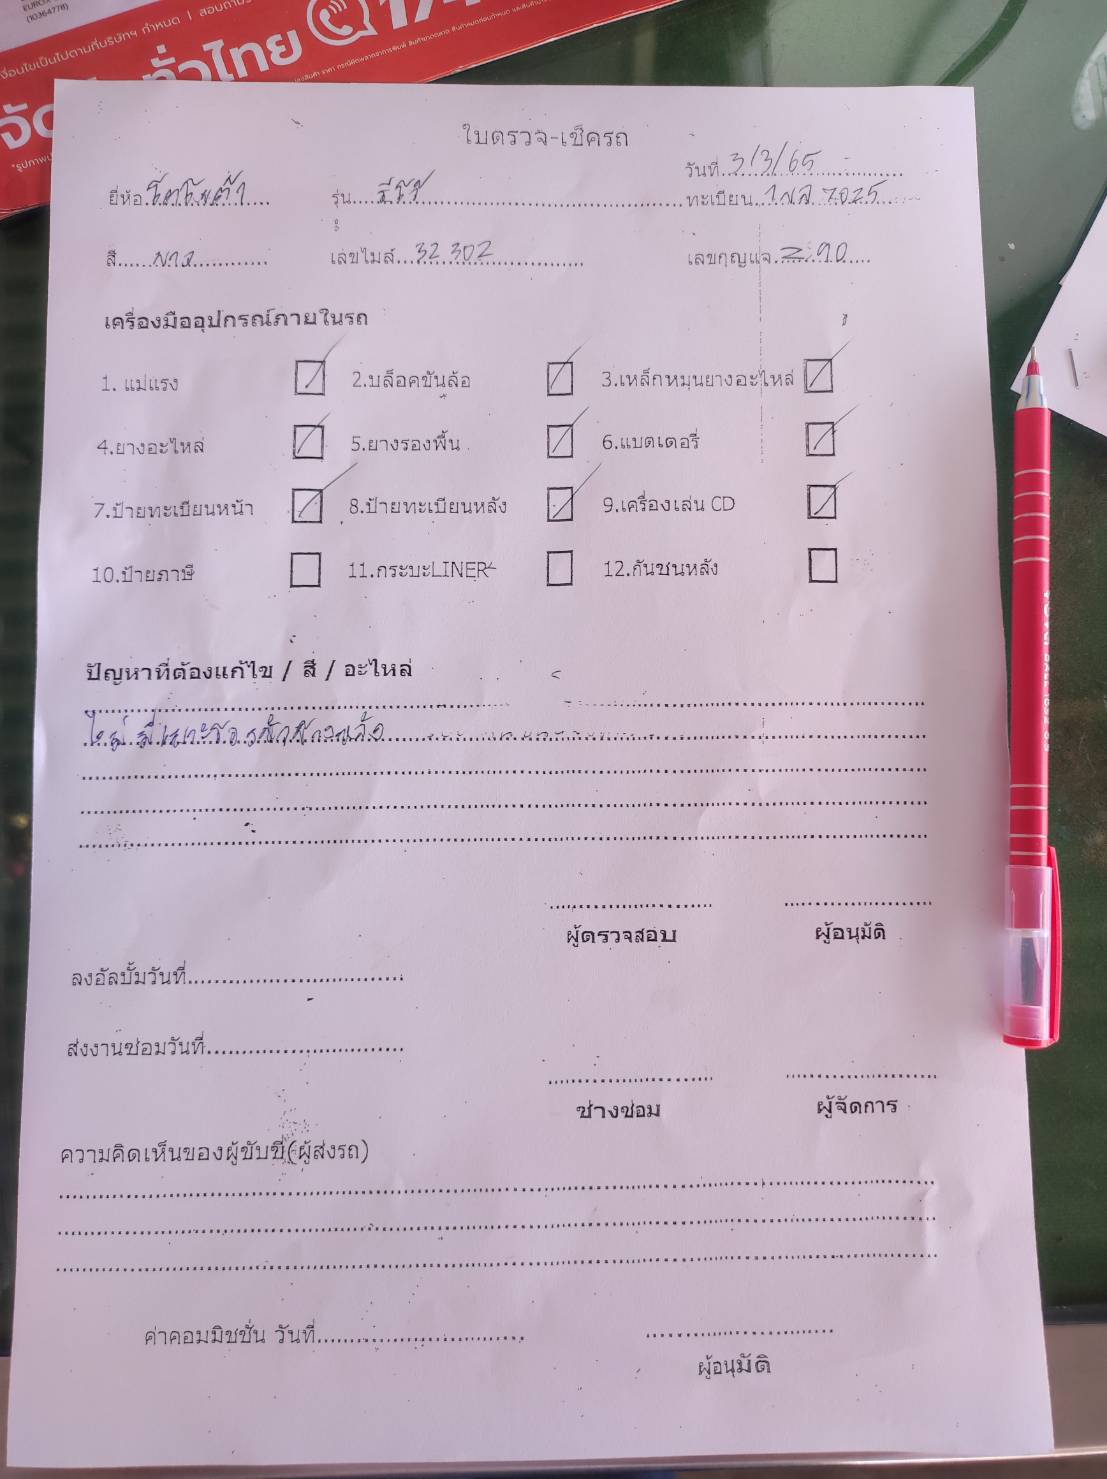 (10364778)
เงื่อนไขเป็นไปตามที่บริษัทฯ กำหนด |
ทั่วไทย
ใบตรวจ-เช็ครถ
วันที่ 3/3/65
ยี่ห้อ โตโยต้า รุ่น รีโว้ ทะเบียน 7025
สี เลขไมล์ 32302 เลขกุญแจ 90
เครื่องมืออุปกรณ์ภายในรถ
1. แม่แรง 2.บล็อคขันล้อ 3.เหล็กหมุนยางอะไหล่
4.ยางอะไหล่ 5.ยางรองพื้น 6.แบตเตอรี่
7.ป้ายทะเบียนหน้า 8.ป้ายทะเบียนหลัง 9.เครื่องเล่น CD
10.ป้ายภาษี 11.กระบะLINER 12.กันชนหลัง
ปัญหาที่ต้องแก้ไข / สี / อะไหล่
ผู้ตรวจสอบ ผู้อนุมัติ
ลงอัลบั้มวันที่
ส่งงานซ่อมวันที่
ช่างซ่อม ผู้จัดการ
ความคิดเห็นของผู้ขับขี่(ผู้ส่งรถ)
ค่าคอมมิชชั่น วันที่
ผู้อนุมัติ